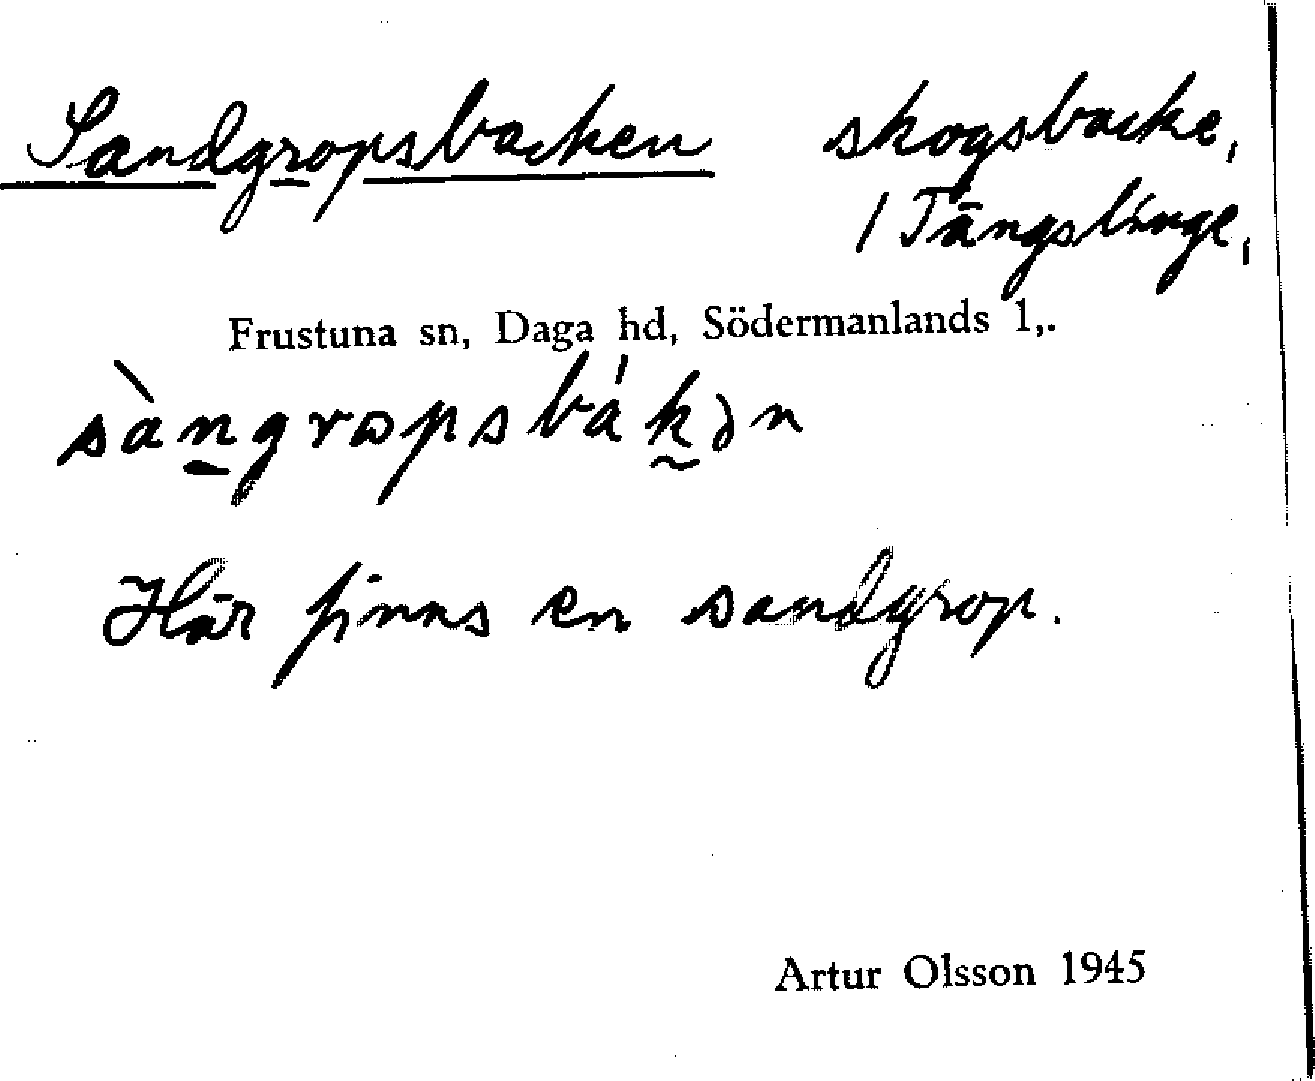 Sandgropsbacken skogsbacke,
/ Tängslinge,
Frustuna sn, Daga hd, Södermanlands l,.
sàngrɷpsbák̰ən
Här finns en sandgrop.
Artur Olsson 1945